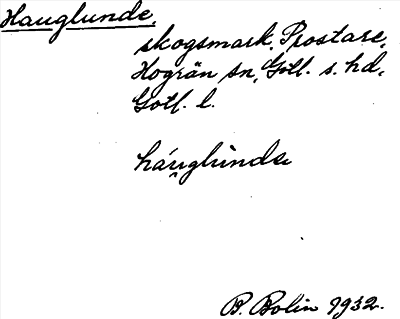 Hauglunde,
skogsmark, Prostarve,
Hogrän sn, Gotl. s. hd,
Gotl. l.
háu̯glùnde
B. Bolin 1932.